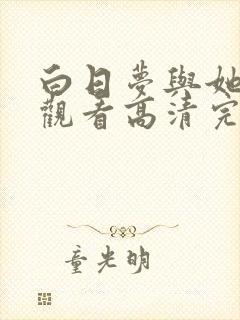 白日夢與她
觀看高清完
童光明